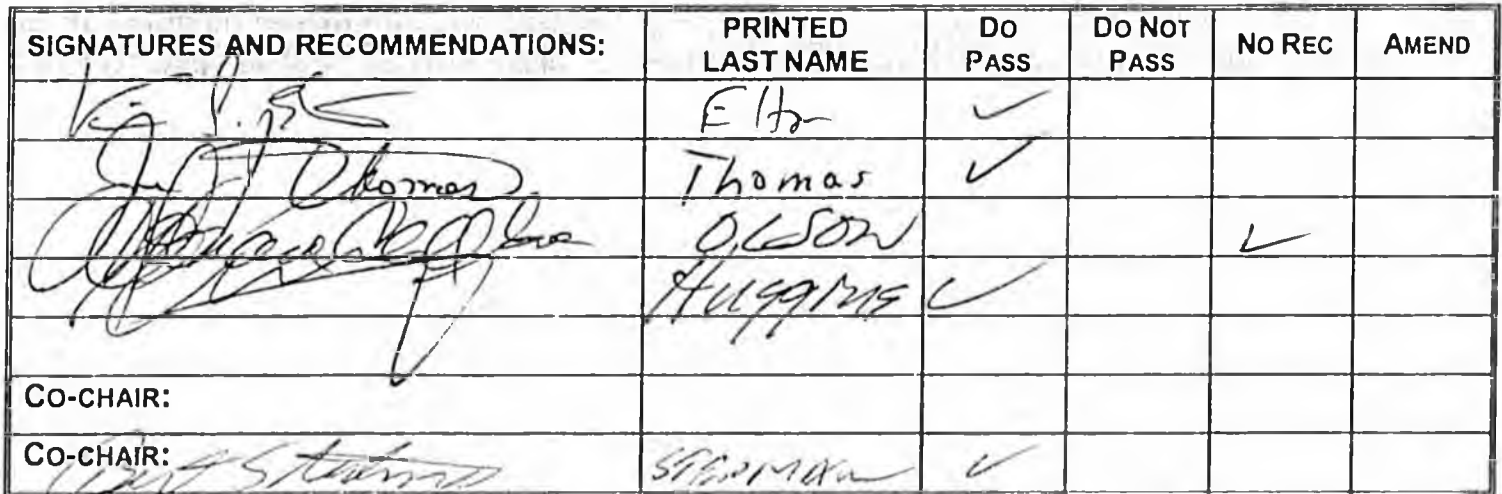 SIGNATURES AND RECOMMENDATIONS: PRINTED LAST NAME DO PASS DO NOT PASS NO REC AMEND
Elton ✓
Thomas Thomas ✓
Olson OLSON ✓
Huggins ✓
CO-CHAIR:
CO-CHAIR: STEDMAN ✓